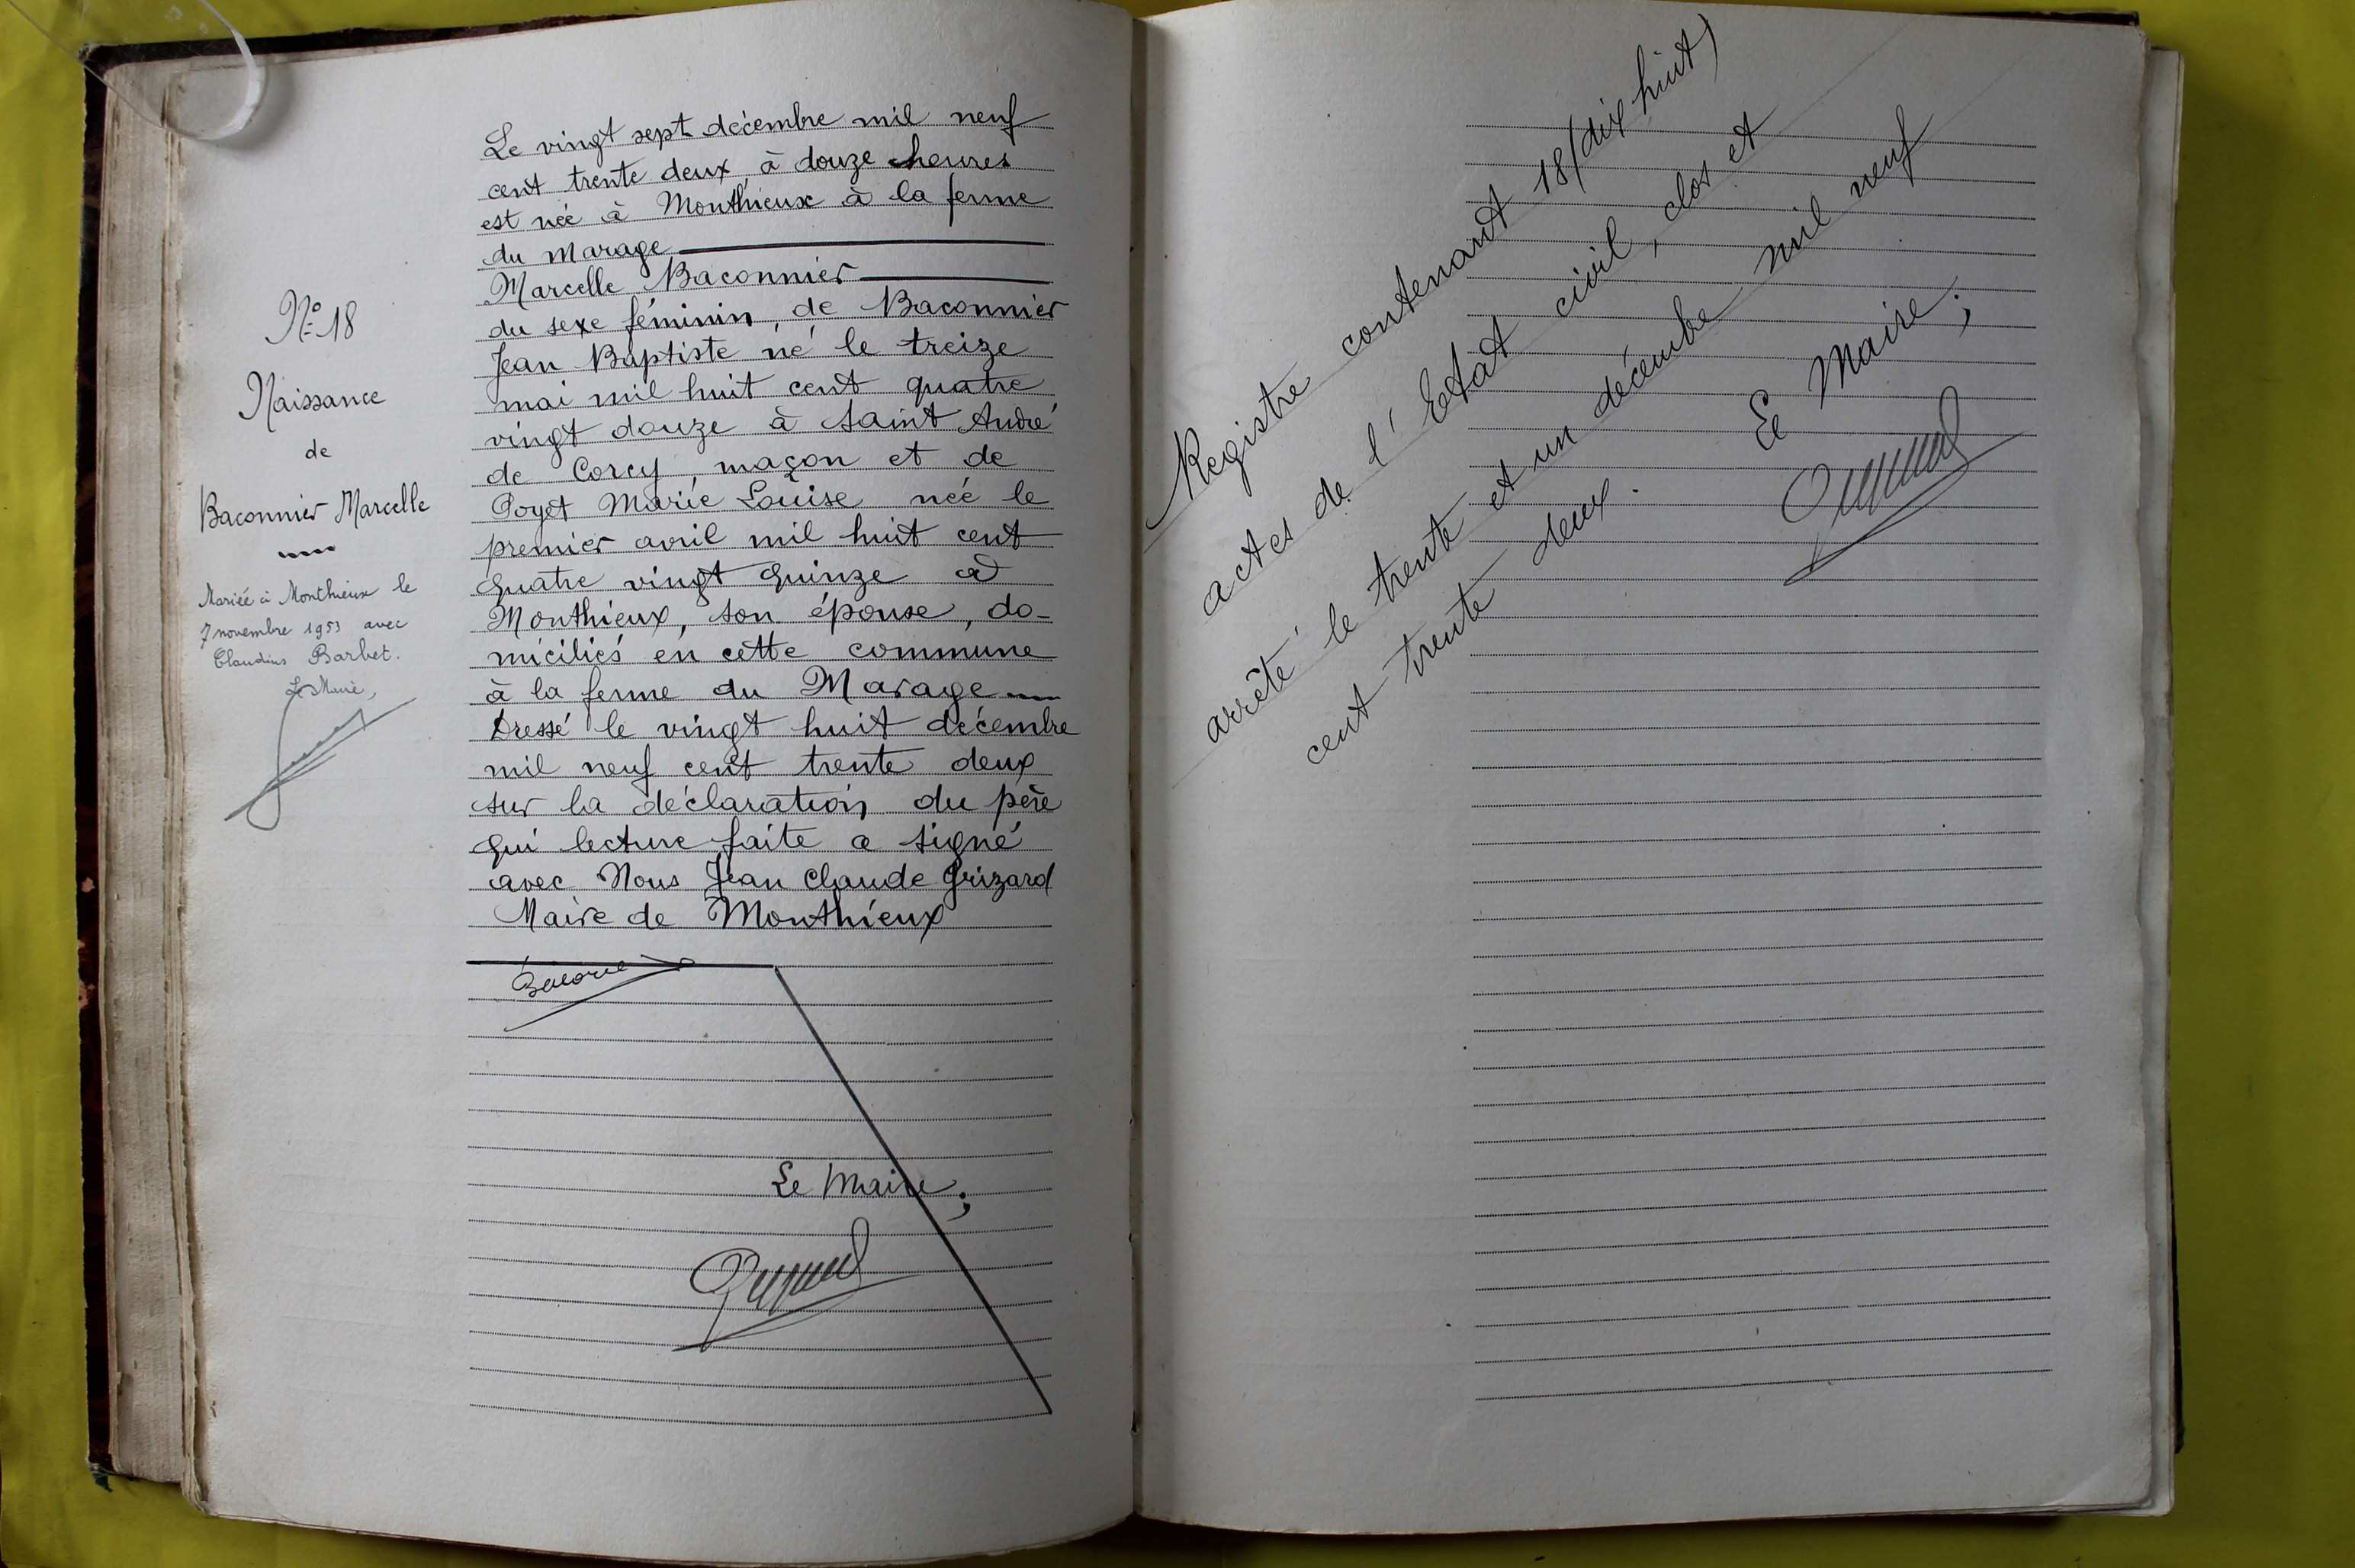 N° 18
Naissance
de
Baconnier Marcelle
Mariée à Monthieux le
7 novembre 1953 avec
Claudius Barbet.
Le Maire,
Le vingt sept décembre mil neuf
cent trente deux, à douze heures
est née à Monthieux à la ferme
du Marage
Marcelle Baconnier
du sexe féminin, de Baconnier
Jean Baptiste né le treize
mai mil huit cent quatre
vingt douze à Saint André
de Corcy, maçon et de
Poyet Marie Louise née le
premier avril mil huit cent
quatre vingt quinze à
Monthieux, son épouse, do-
miciliés en cette commune
à la ferme du Marage
Dressé le vingt huit décembre
mil neuf cent trente deux
sur la déclaration du père
qui lecture faite a signé
avec Nous Jean Claude Grizard
Maire de Monthieux
Le Maire;
Registre contenant 18 (dix huit)
actes de l'Etat civil, clos et
arrêté le trente et un décembre mil neuf
cent trente deux.
Le Maire;